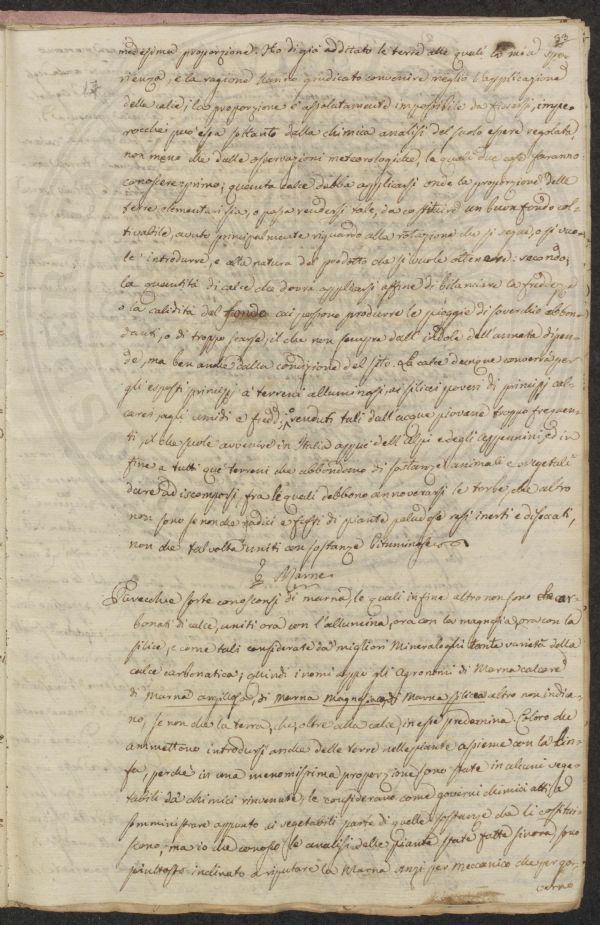 33
medesima proporzione. Ho di già additato le terre alle quali la mia spe-
rienza, e la ragione hanno giudicato convenire meglio l'applicazione
della calce; la proporzione è assolutamente impossibile da fissarsi, impe-
rocchè può essa soltanto dalla chimica analisi del suolo essere regolata,
non meno che dalle osservazioni meteorologiche, le quali due cose faranno
conoscere: primo; quanta calce debba applicarsi onde la proporzione delle
terre elementari sia, o possa rendersi tale, da costituire un buon fondo col-
tivabile, avuto principalmente riguardo alla rotazione che si segue, o si vuo-
le introdurre, e alla natura del prodotto che si vuole ottenere: secondo;
la quantità di calce che dovrà applicarsi affine di bilanciare la freddezza
o la calidità del fondo cui possono produrre le pioggie di soverchio abbon-
danti, o di troppo scarse, il che non sempre dall'indole dell'annata dipen-
de, ma ben anche dalla condizione del sito. La calce dunque converrà per
gli esposti principj a terreni alluminosi, ai silicei poveri di principj cal-
carei, agli umidi e freddi, o renduti tali dall'acque piovane troppo frequen-
ti, il che suole avvenire in Italia appiè dell'Alpi e degli Appennini, ed in
fine a tutti que' terreni che abbondano di sostanze animali e vegetali
dure ad iscomporsi, fra le quali debbono annoverarsi le torbe, che altro
non sono se non che radici e fusti di piante paludose resi inerti e diseccati,
non che talvolta uniti con sostanze bituminose.
Marne
Parecchie sorte conosconsi di marna, le quali in fine altro non sono che car-
bonati di calce, uniti ora con l'allumina, ora con la magnesia, ora con la
silice, e come tali considerate da' migliori Mineraloghi tante varietà della
calce carbonatica; quindi i nomi appo gli Agronomi di Marna calcare
di Marna argillosa, di Marna Magnesiaca, di Marna silicea altro non indica-
no, se non che la terra, che, oltre alla calce, in esse predomina. Coloro che
ammettono introdursi anche delle terre nelle piante assieme con la Lin-
fa, perchè in una menomissima proporzione sono state in alcuni vege-
tabili da' chimici rinvenute, le considerano come governi chimici atti a
somministrare appunto ai vegetabili parte di quelle sostanze che li costitui-
scono; ma io che conosco le analisi delle piante state fatte sinora, sono
piuttosto inclinato a riputare la Marna anzi per Meccanico che per go-
verno